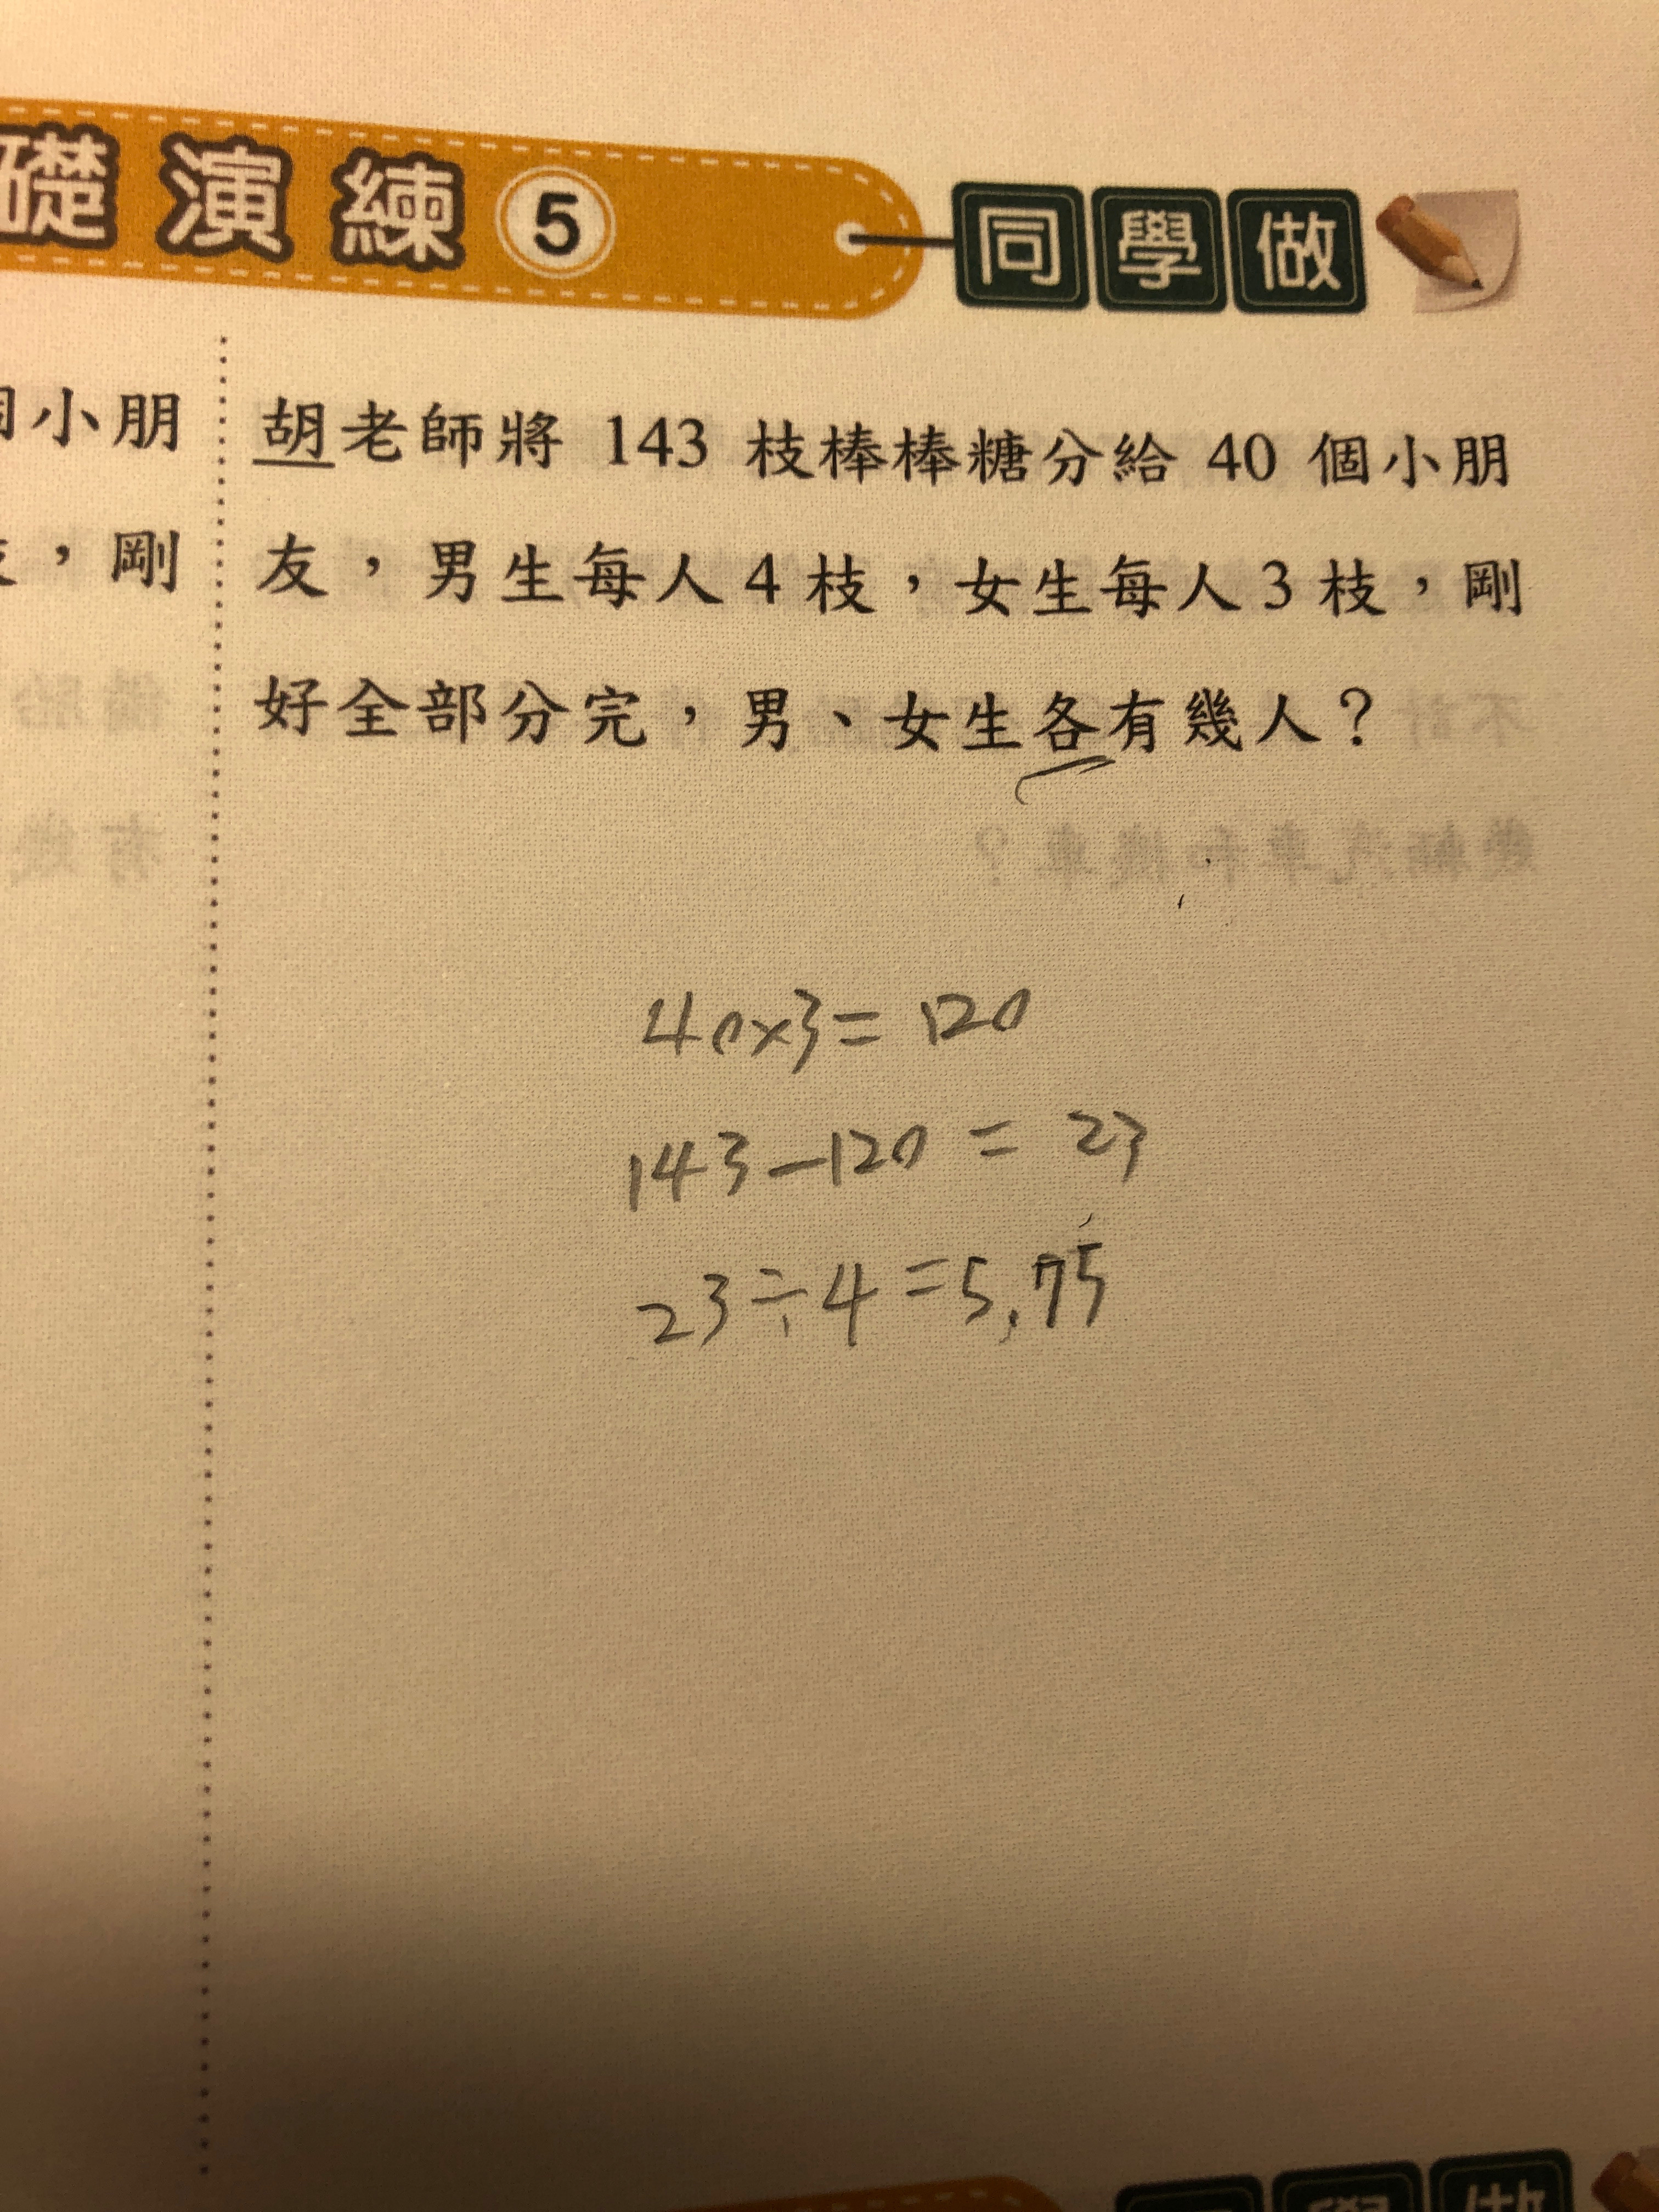 礎演練 5 同學做
小朋
，剛
胡老師將 143 枝棒棒糖分給 40 個小朋
友，男生每人 4 枝，女生每人 3 枝，剛
好全部分完，男、女生各有幾人？
40×3=120
143-120=23
23÷4=5.75